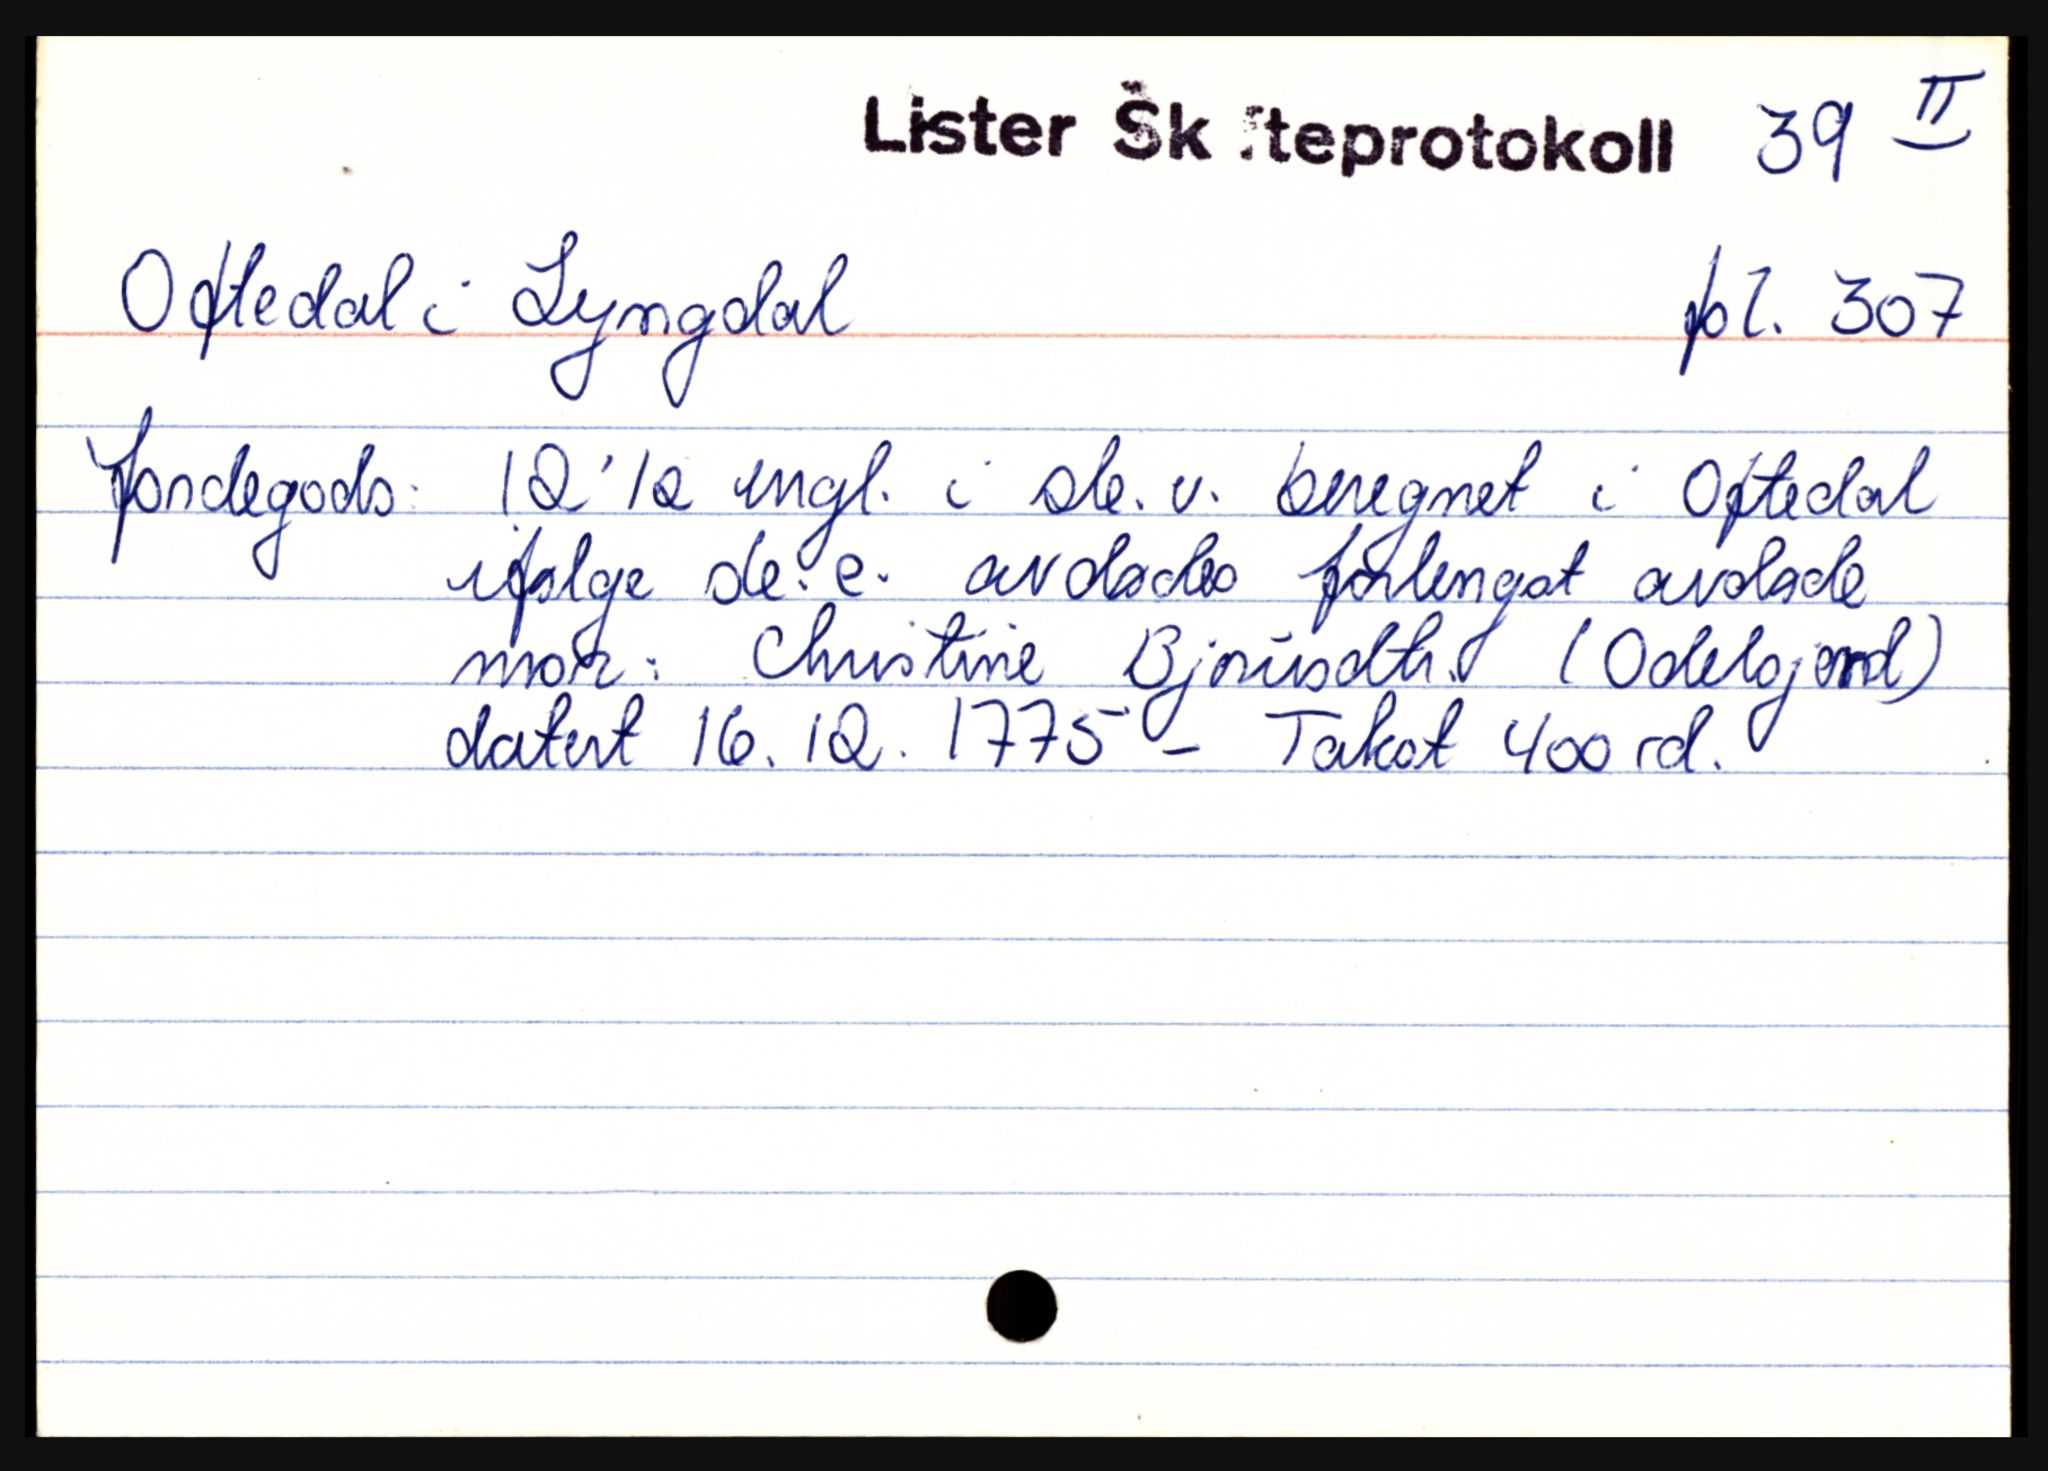 Lister Skifteprotokoll 39 II
Oftedal i Lyngdal fol. 307
Jordegods: 12 1/2 engl. i sk. v. beregnet i Oftedal
ifølge sk. e. avdødes forlengst avdøde
mor: Christine Bjørnsdtr. (Odelsjord)
datert 16.12.1775 - Takst 400 rd.